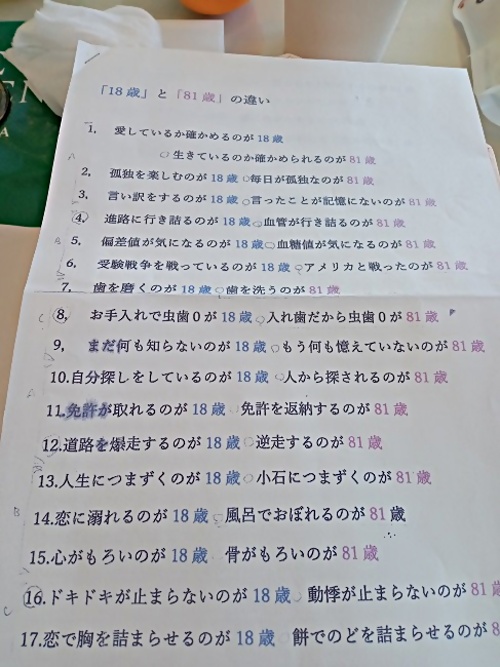 「18歳」と「81歳」の違い
1, 愛しているか確かめるのが 18歳
○生きているのか確かめられるのが 81歳
2, 孤独を楽しむのが 18歳 ○毎日が孤独なのが 81歳
3, 言い訳をするのが 18歳 ○言ったことが記憶にないのが 81歳
4, 進路に行き詰るのが 18歳 ○血管が行き詰るのが 81歳
5, 偏差値が気になるのが 18歳○血糖値が気になるのが 81歳
6, 受験戦争を戦っているのが 18歳 ○アメリカと戦ったのが 81歳
7, 歯を磨くのが 18歳 ○歯を洗うのが 81歳
8, お手入れで虫歯0が 18歳○入れ歯だから虫歯0が 81歳
9, まだ何も知らないのが 18歳○もう何も憶えていないのが 81歳
10.自分探しをしているのが 18歳 ○人から探されるのが 81歳
11.免許が取れるのが 18歳 免許を返納するのが 81歳
12.道路を爆走するのが 18歳○逆走するのが 81歳
13.人生につまずくのが 18歳○小石につまずくのが 81歳
14.恋に溺れるのが 18歳○風呂でおぼれるのが 81歳
15.心がもろいのが 18歳 骨がもろいのが 81歳
16.ドキドキが止まらないのが 18歳○動悸が止まらないのが 81歳
17.恋で胸を詰まらせるのが 18歳○餅でのどを詰まらせるのが 8